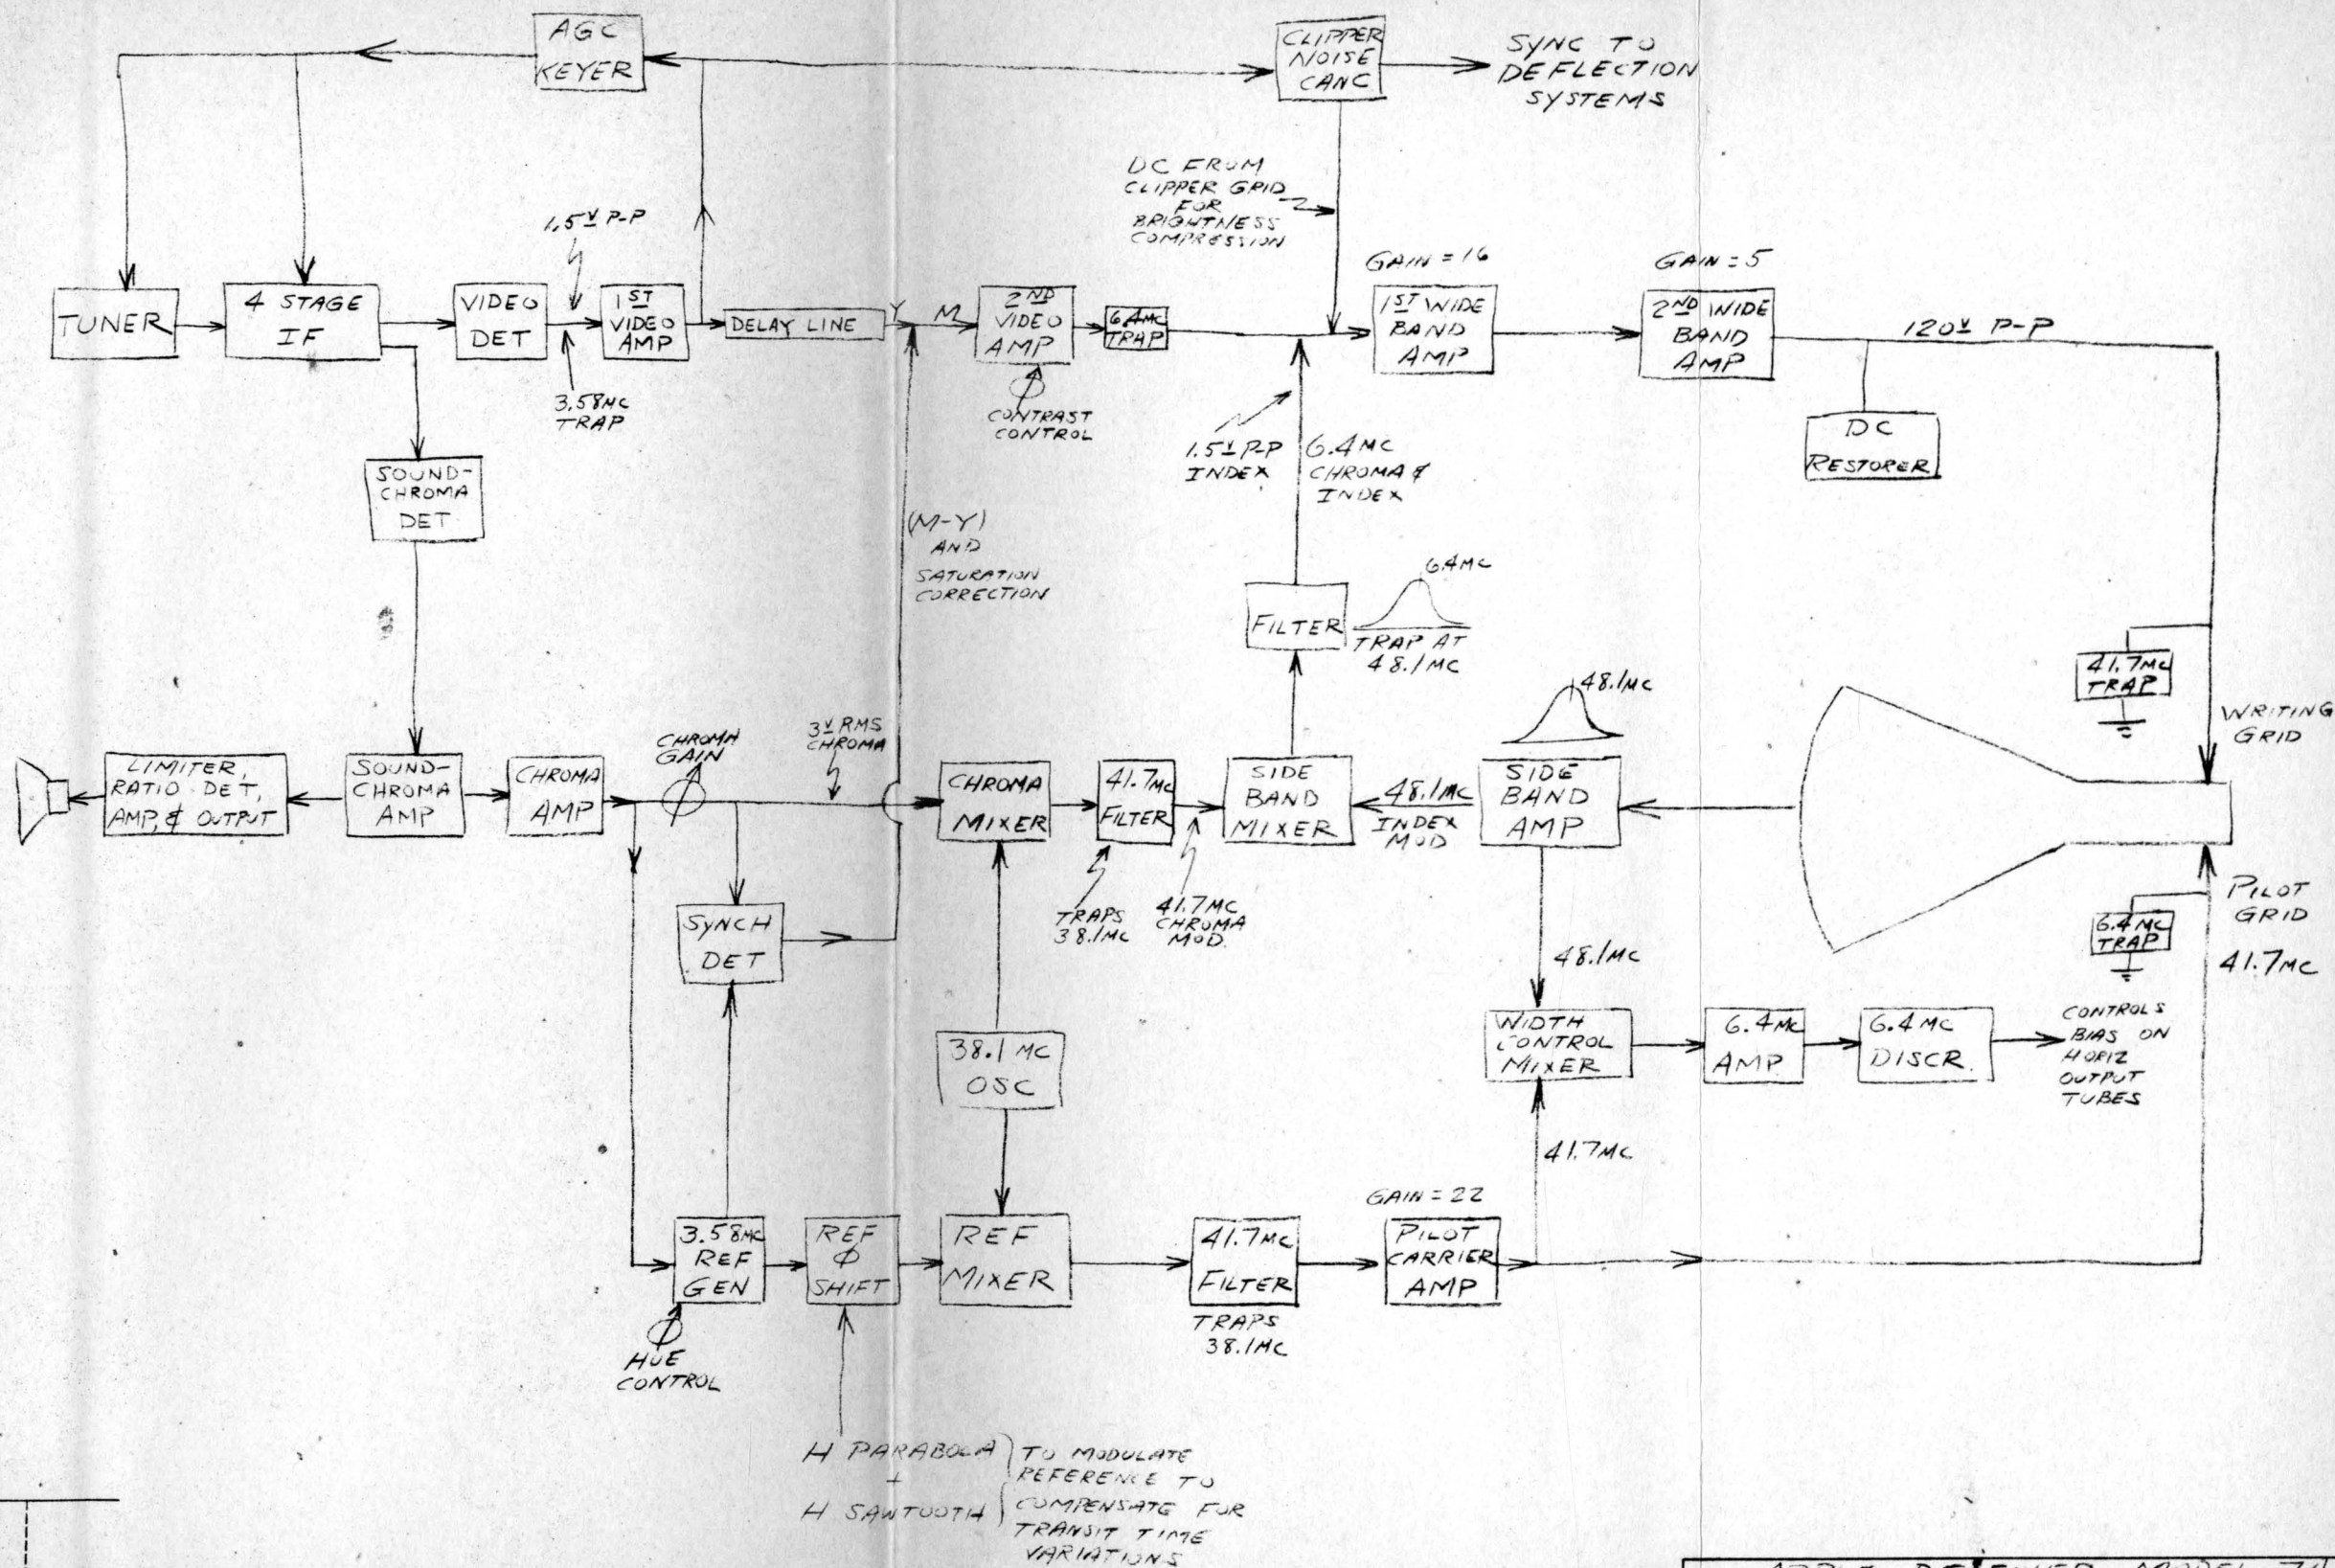 AGC
KEYER
CLIPPER
NOISE
CANC
SYNC TO
DEFLECTION
SYSTEMS
DC FROM
CLIPPER GRID
FOR
BRIGHTNESS
COMPRESSION
1.5V P-P
GAIN = 16
GAIN = 5
TUNER
4 STAGE
IF
VIDEO
DET
1ST
VIDEO
AMP
DELAY LINE
Y
M
2ND
VIDEO
AMP
6.4MC
TRAP
1ST WIDE
BAND
AMP
2ND WIDE
BAND
AMP
120V P-P
3.58MC
TRAP
CONTRAST
CONTROL
DC
RESTORER
1.5V P-P
INDEX
6.4MC
CHROMA &
INDEX
SOUND-
CHROMA
DET
(M-Y)
AND
SATURATION
CORRECTION
FILTER
6.4MC
TRAP AT
48.1MC
48.1MC
41.7MC
TRAP
WRITING
GRID
CHROMA
GAIN
3V RMS
CHROMA
LIMITER,
RATIO DET,
AMP, & OUTPUT
SOUND-
CHROMA
AMP
CHROMA
AMP
CHROMA
MIXER
41.7MC
FILTER
SIDE
BAND
MIXER
48.1MC
INDEX
MOD
SIDE
BAND
AMP
TRAPS
38.1MC
41.7MC
CHROMA
MOD.
PILOT
GRID
41.7MC
6.4MC
TRAP
SYNCH
DET
48.1MC
38.1 MC
OSC
WIDTH
CONTROL
MIXER
6.4MC
AMP
6.4MC
DISCR.
CONTROLS
BIAS ON
HORIZ
OUTPUT
TUBES
41.7MC
GAIN = 22
3.58MC
REF
GEN
REF
Φ
SHIFT
REF
MIXER
41.7MC
FILTER
PILOT
CARRIER
AMP
TRAPS
38.1MC
HUE
CONTROL
H PARABOLA
+
H SAWTOOTH
TO MODULATE
REFERENCE TO
COMPENSATE FOR
TRANSIT TIME
VARIATIONS